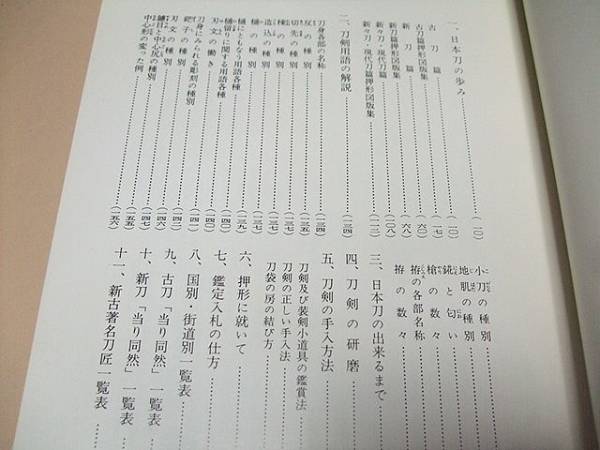 一、日本刀の歩み……(一〇)
古刀篇……(一〇)
古刀篇押形図版集……(一七)
新刀篇……(六〇)
新刀篇押形図版集……(六八)
新々刀・現代刀篇……(一〇八)
新々刀・現代刀篇押形図版集……(一一三)
二、刀剣用語の解説……(一三四)
刀身各部の名称……(一三四)
反の種別……(一三五)
切先の種別
棟の種別……(一三七)
造込の種別
樋の種別……(一三七)
樋にともなう用語各種……(一三九)
樋留りに関する用語各種……(一四〇)
刃文の働き……(一四〇)
刀身にみられる彫刻の種別……(一四一)
鋩子の種別……(一四二)
刃文の種別……(一四六)
鑢と中心尻の種別……(一四七)
中心形の変った例……(一五五)
(一五六)
小刀の種別
地肌の種別
錵と匂い
槍の数々
拵の各部名称
拵の数々
三、日本刀の出来るまで
四、刀剣の研磨
五、刀剣の手入方法
刀剣及び装剣小道具の鑑賞法
刀剣の正しい手入法
刀袋の房の結び方
六、押形に就いて
七、鑑定入札の仕方
八、国別・街道別一覧表
九、古刀「当り同然」一覧表
十、新刀「当り同然」一覧表
十一、新古著名刀匠一覧表